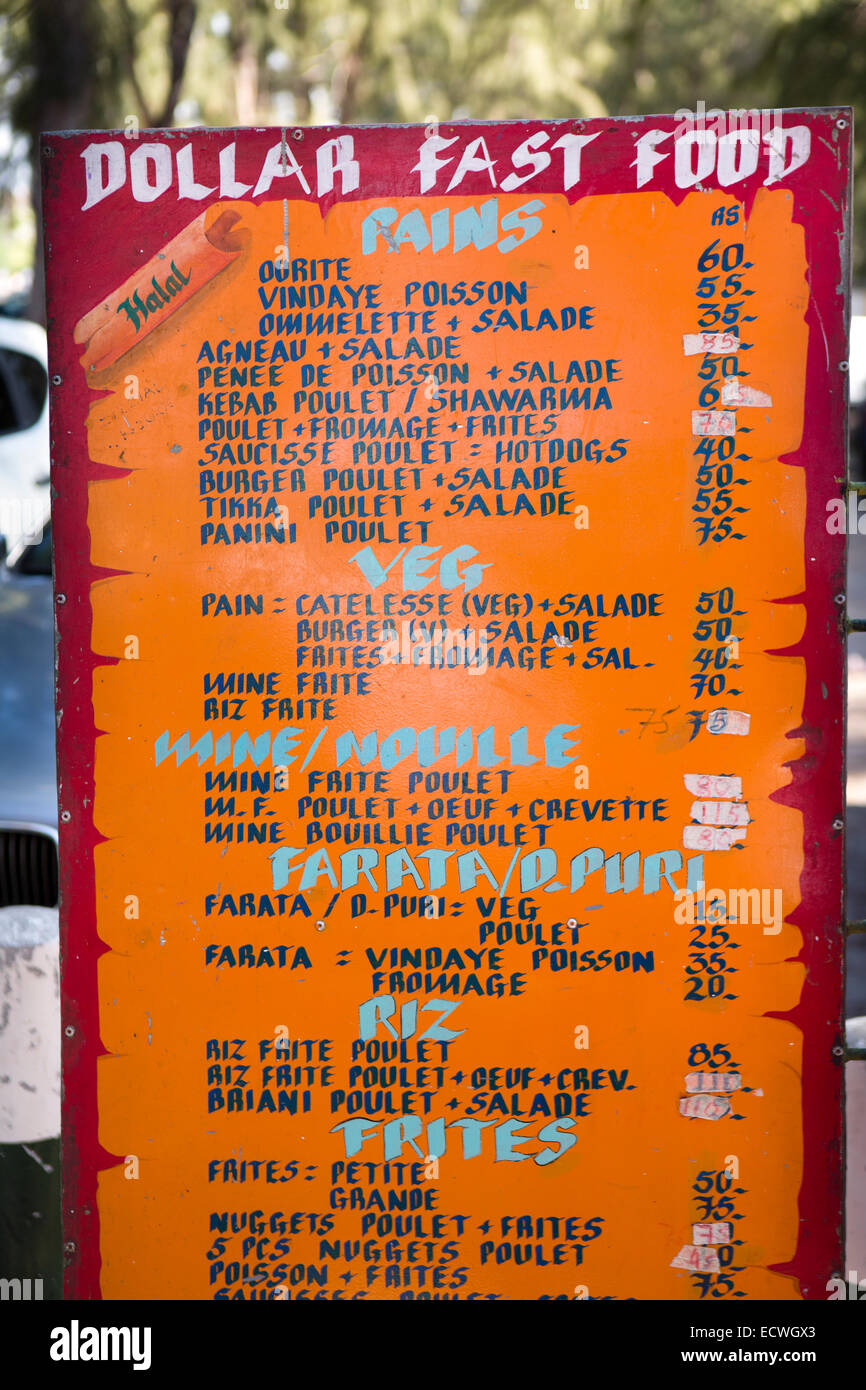 DOLLAR FAST FOOD
Halal
PAINS RS
OURITE 60.-
VINDAYE POISSON 55.-
OMMELETTE + SALADE 35.-
AGNEAU + SALADE 85
PENEE DE POISSON + SALADE 50.-
KEBAB POULET / SHAWARMA
POULET + FROMAGE + FRITES 70
SAUCISSE POULET = HOTDOGS 40.-
BURGER POULET + SALADE 50.-
TIKKA POULET + SALADE 55.-
PANINI POULET 75.-
VEG
PAIN = CATELESSE (VEG) + SALADE 50.-
BURGER (V) + SALADE 50.-
FRITES + FROMAGE + SAL. 40.-
MINE FRITE 70.-
RIZ FRITE 75 75
MINE/NOUILLE
MINE FRITE POULET 80
M.F. POULET + OEUF + CREVETTE 115
MINE BOUILLIE POULET 80
FARATA/D.PURI
FARATA / D.PURI = VEG 15.-
POULET 25.-
FARATA = VINDAYE POISSON 35.-
FROMAGE 20.-
RIZ
RIZ FRITE POULET 85.-
RIZ FRITE POULET + OEUF + CREV. 110
BRIANI POULET + SALADE
FRITES
FRITES = PETITE 50.-
GRANDE 75.-
NUGGETS POULET + FRITES 75
5 PCS NUGGETS POULET
POISSON + FRITES 75.-
alamy
alamy
Image ID: ECWGX3
www.alamy.com